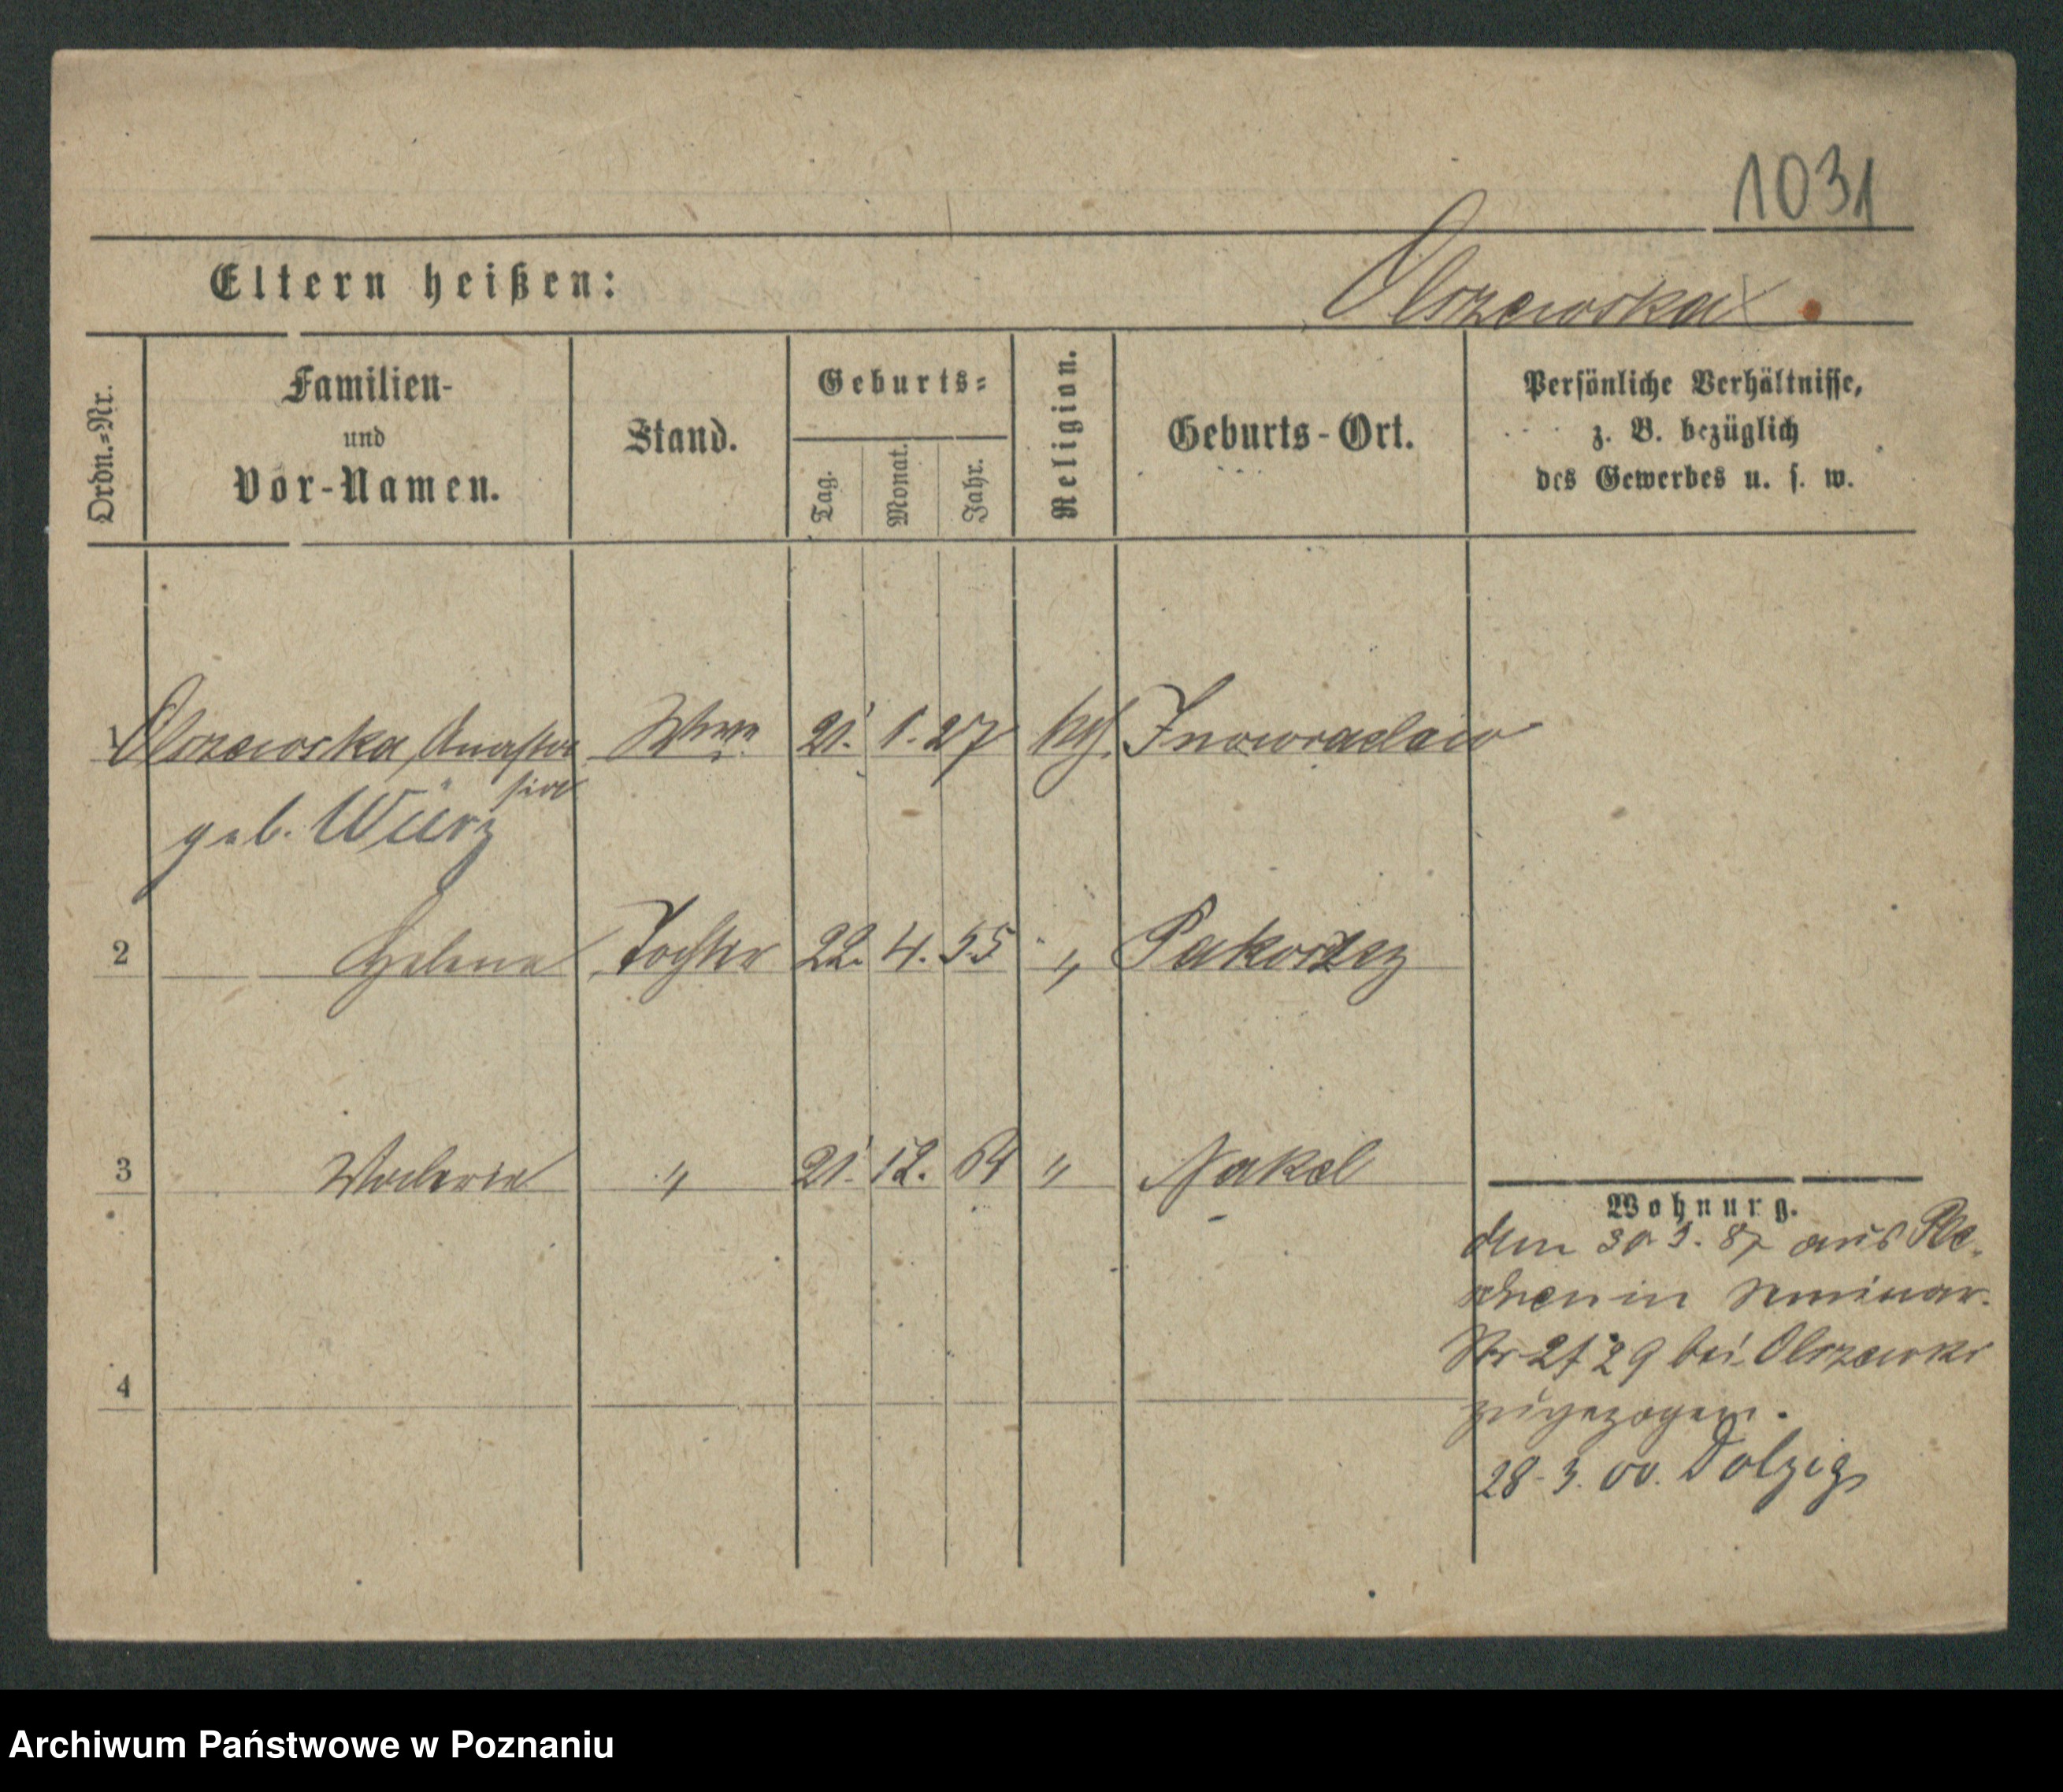 1031
Eltern heißen:
Olszewska
Ordn.=Nr.
Familien-
und
Vor-Namen.
Stand.
Geburts=
Tag.
Monat.
Jahr.
Religion.
Geburts-Ort.
Persönliche Verhältnisse,
z. B. bezüglich
des Gewerbes u. s. w.
1 Olszewska, Anasta Wwe 21. 1. 27 kth. Inowraclaw
sia
geb. Würz
2 Helena Tochter 22. 4. 55 " Pakosz
3 Waleria " 21. 12. 64 " Nakel
4
Wohnung.
den 30. 3. 87 aus
in Seminar-
Str 29 bei Olszewski
zugezogen.
28. 3. 00. Dolzig
Archiwum Państwowe w Poznaniu